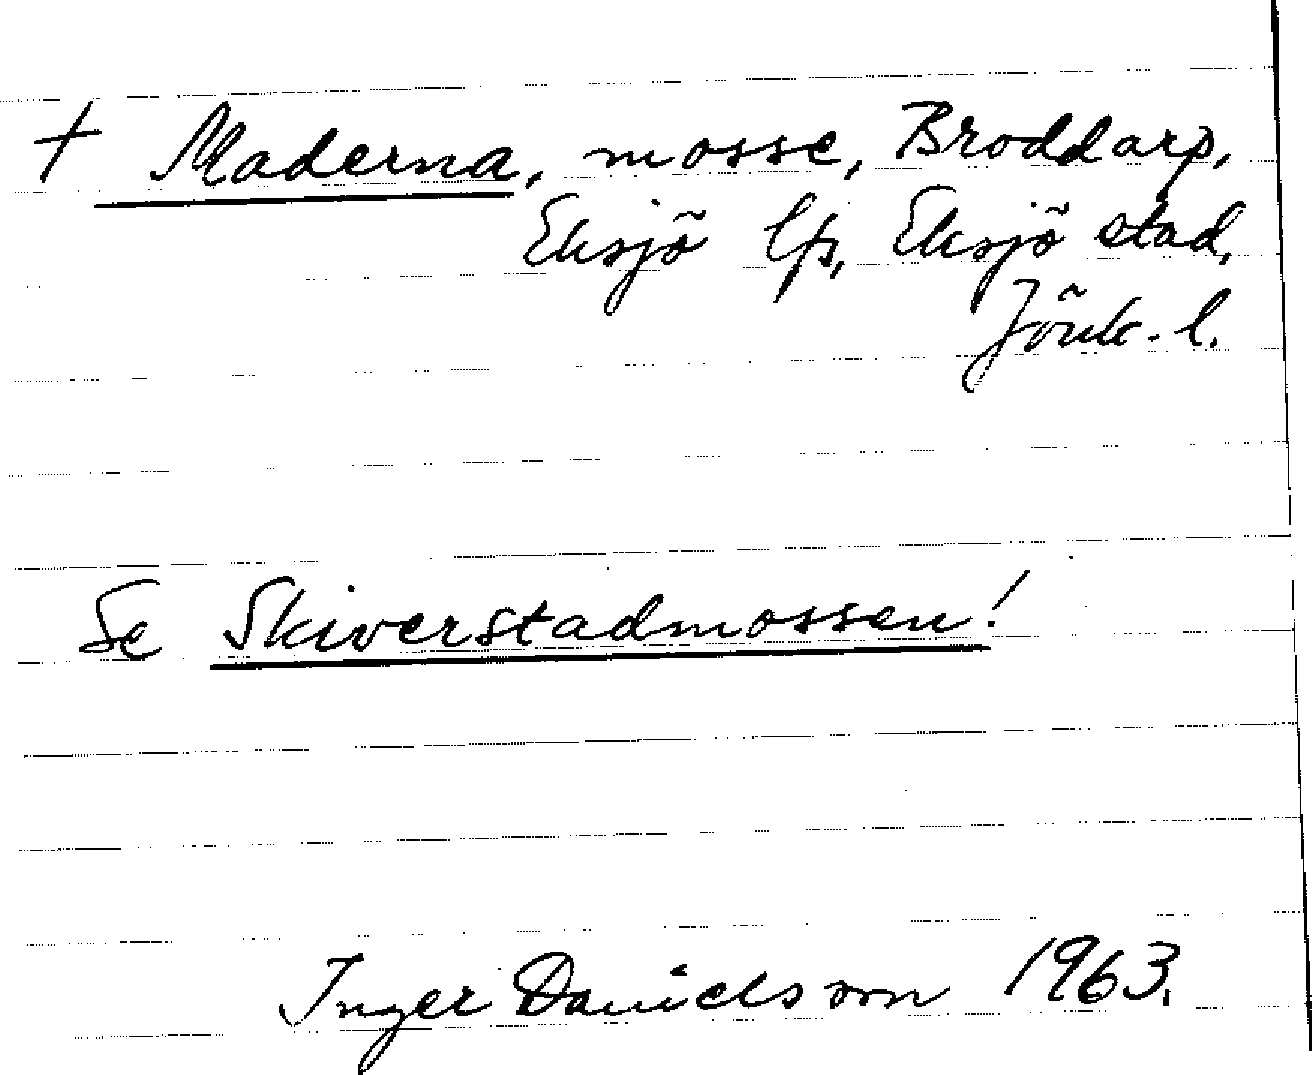 † Maderna, mosse, Broddarp,
Eksjö lfs, Eksjö stad,
Jönk. l.
Se Skiverstadmossen!
Inger Danielsson 1963.